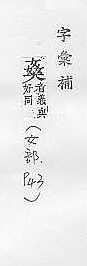 字彙補
音義與
好同
(女部. P43)